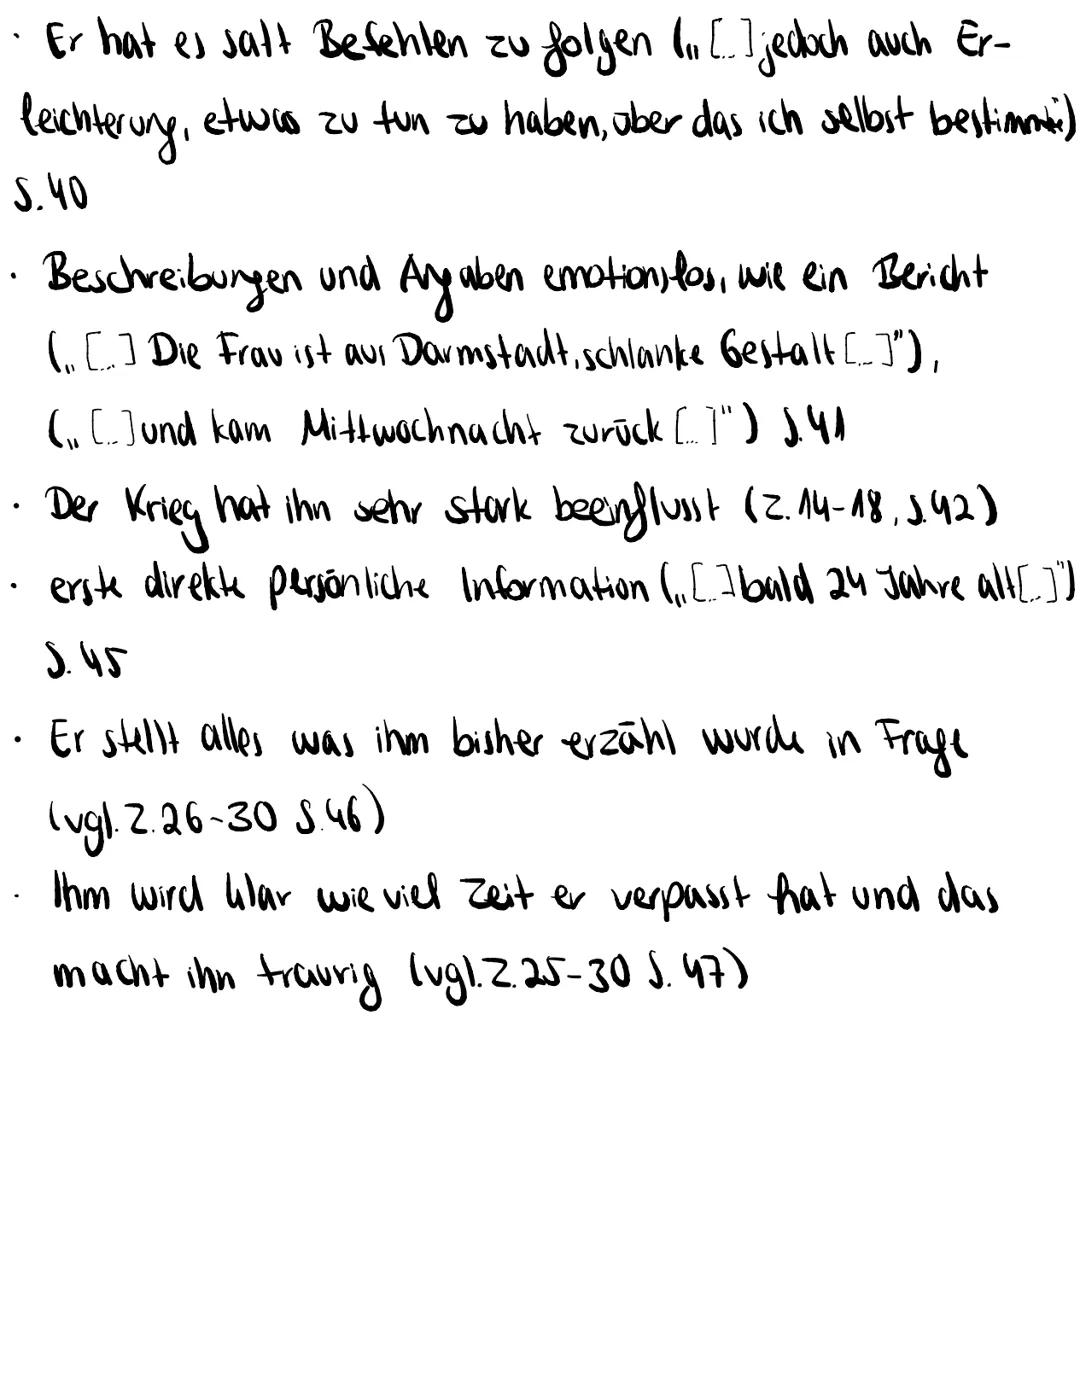 · Er hat es satt Befehlen zu folgen („[...] jedoch auch Er-
leichterung, etwas zu tun zu haben, über das ich selbst bestimmte")
S. 40
· Beschreibungen und Angaben emotionslos, wie ein Bericht
(„[...] Die Frau ist aus Darmstadt, schlanke Gestalt [...]"),
(„[...] und kam Mittwochnacht zurück [...]") S. 41
· Der Krieg hat ihn sehr stark beeinflusst (Z. 14-18, S. 42)
· erste direkte persönliche Information („[...] bald 24 Jahre alt [...]")
S. 45
· Er stellt alles was ihm bisher erzähl wurde in Frage
(vgl. Z. 26-30 S. 46)
· Ihm wird klar wie viel Zeit er verpasst hat und das
macht ihn traurig (vgl. Z. 25-30 S. 47)